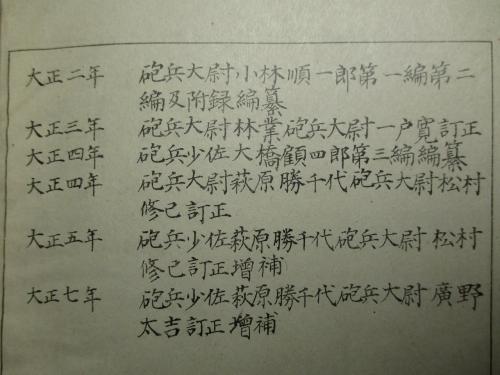 大正二年 砲兵大尉小林順一郎第一編第二
編及附録編纂
大正三年 砲兵大尉林業砲兵大尉一戸寛訂正
大正四年 砲兵少佐大橋顧四郎第三編編纂
大正四年 砲兵大尉萩原勝千代砲兵大尉松村
修己訂正
大正五年 砲兵少佐萩原勝千代砲兵大尉松村
修己訂正增補
大正七年 砲兵少佐萩原勝千代砲兵大尉廣野
太吉訂正增補